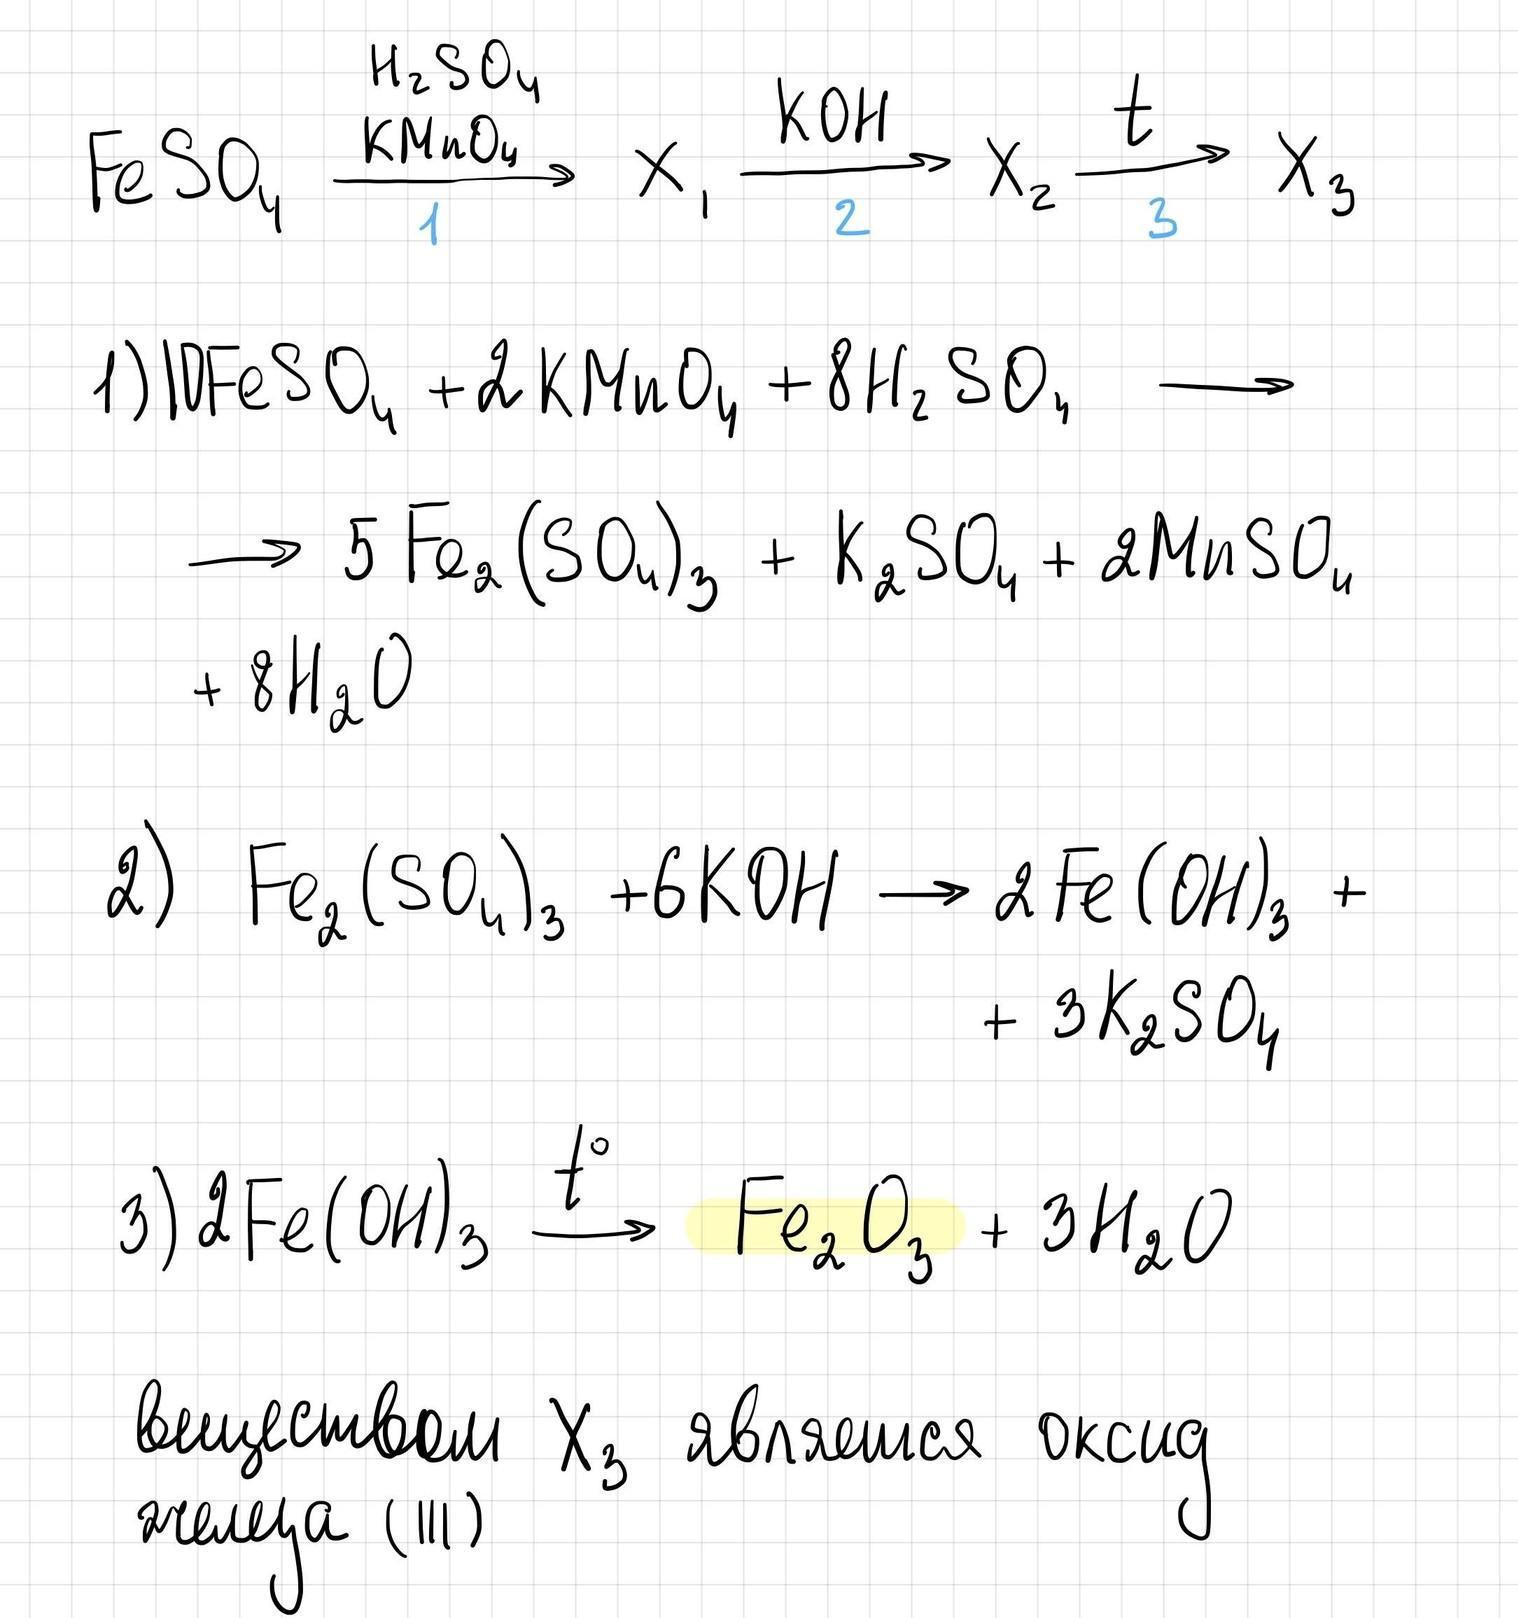 H₂SO₄
FeSO₄ KMnO₄ → X₁ KOH → X₂ t → X₃
1 2 3
1) 10FeSO₄ + 2KMnO₄ + 8H₂SO₄ →
→ 5Fe₂(SO₄)₃ + K₂SO₄ + 2MnSO₄
+ 8H₂O
2) Fe₂(SO₄)₃ + 6KOH → 2Fe(OH)₃ +
+ 3K₂SO₄
3) 2Fe(OH)₃ t° → Fe₂O₃ + 3H₂O
веществом X₃ является оксид
железа (III)